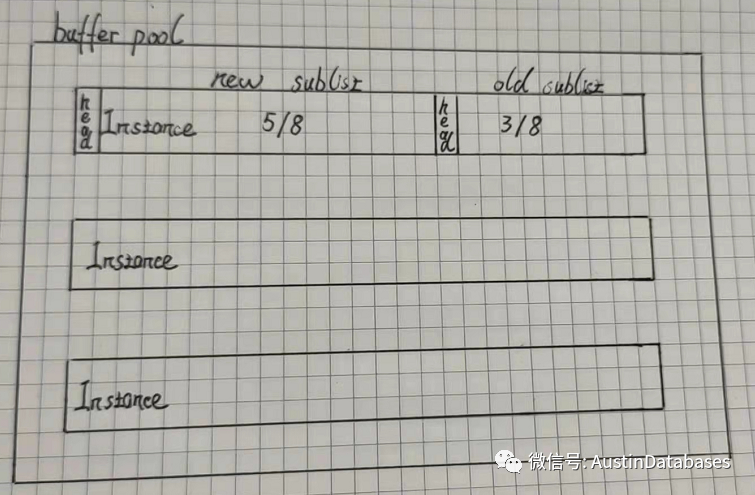 buffer pool
new sublist old sublist
head Instance 5/8 head 3/8
Instance
Instance
微信号: AustinDatabases